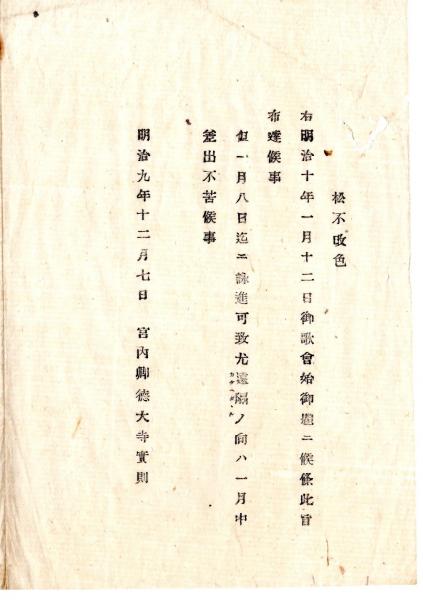 松不改色
右明治十年一月十二日御歌會始御題ニ候條此旨
布達候事
但一月八日迄ニ詠進可致尤遠隔ノ向ハ一月中
差出不苦候事
明治九年十二月七日　宮內卿德大寺實則